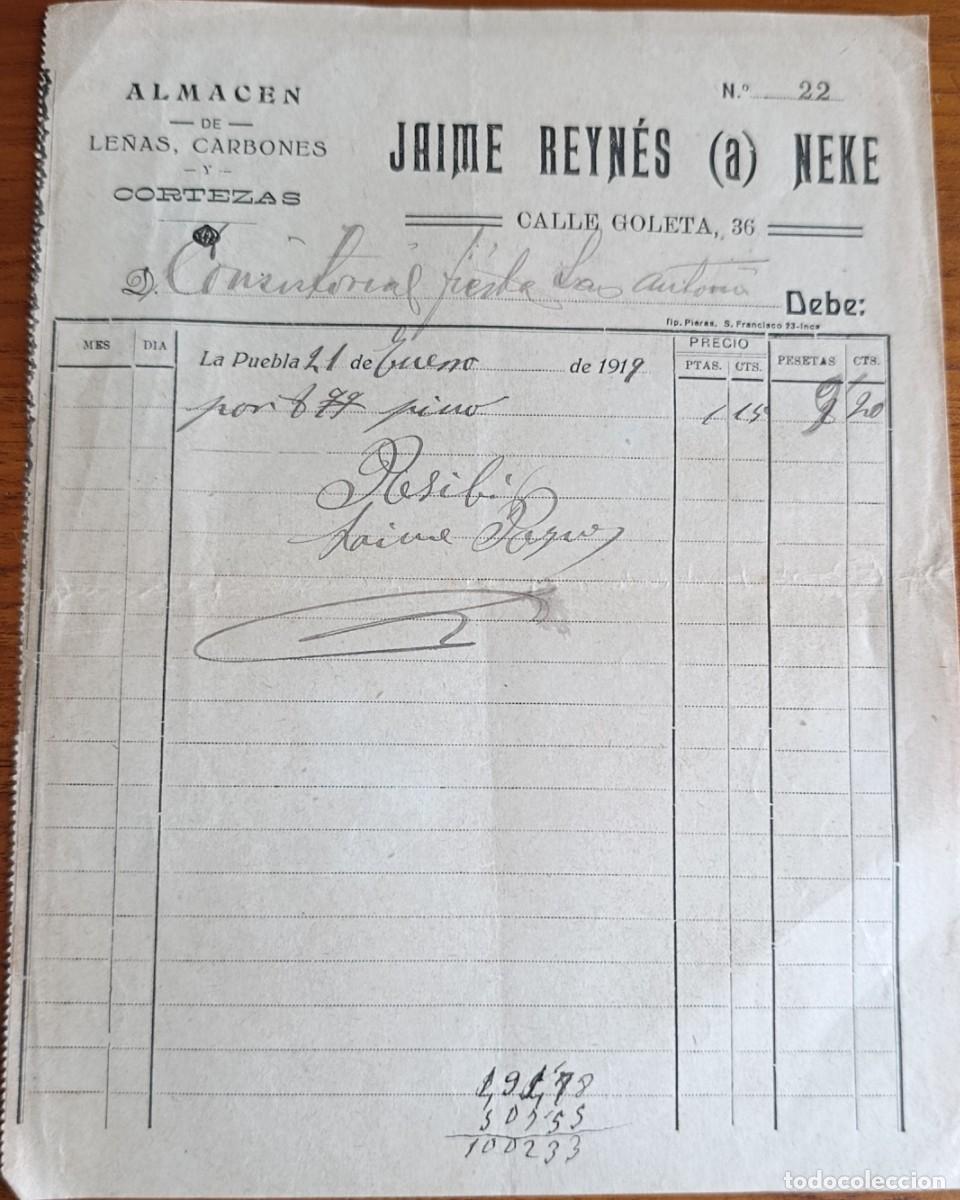 ALMACEN
— DE —
LEÑAS, CARBONES
– Y –
CORTEZAS
N.º 22
JAIME REYNÉS (a) NEKE
CALLE GOLETA, 36
D. Consistorial fiesta San Antonio Debe:
Tip. Pieras, S. Francisco 23-Inca
MES DIA PRECIO PTAS. CTS. PESETAS CTS.
La Puebla 21 de Enero de 1919
por 8 qq pino 1 15 9 20
Resibi
Jaime
50755
100233
todocoleccion